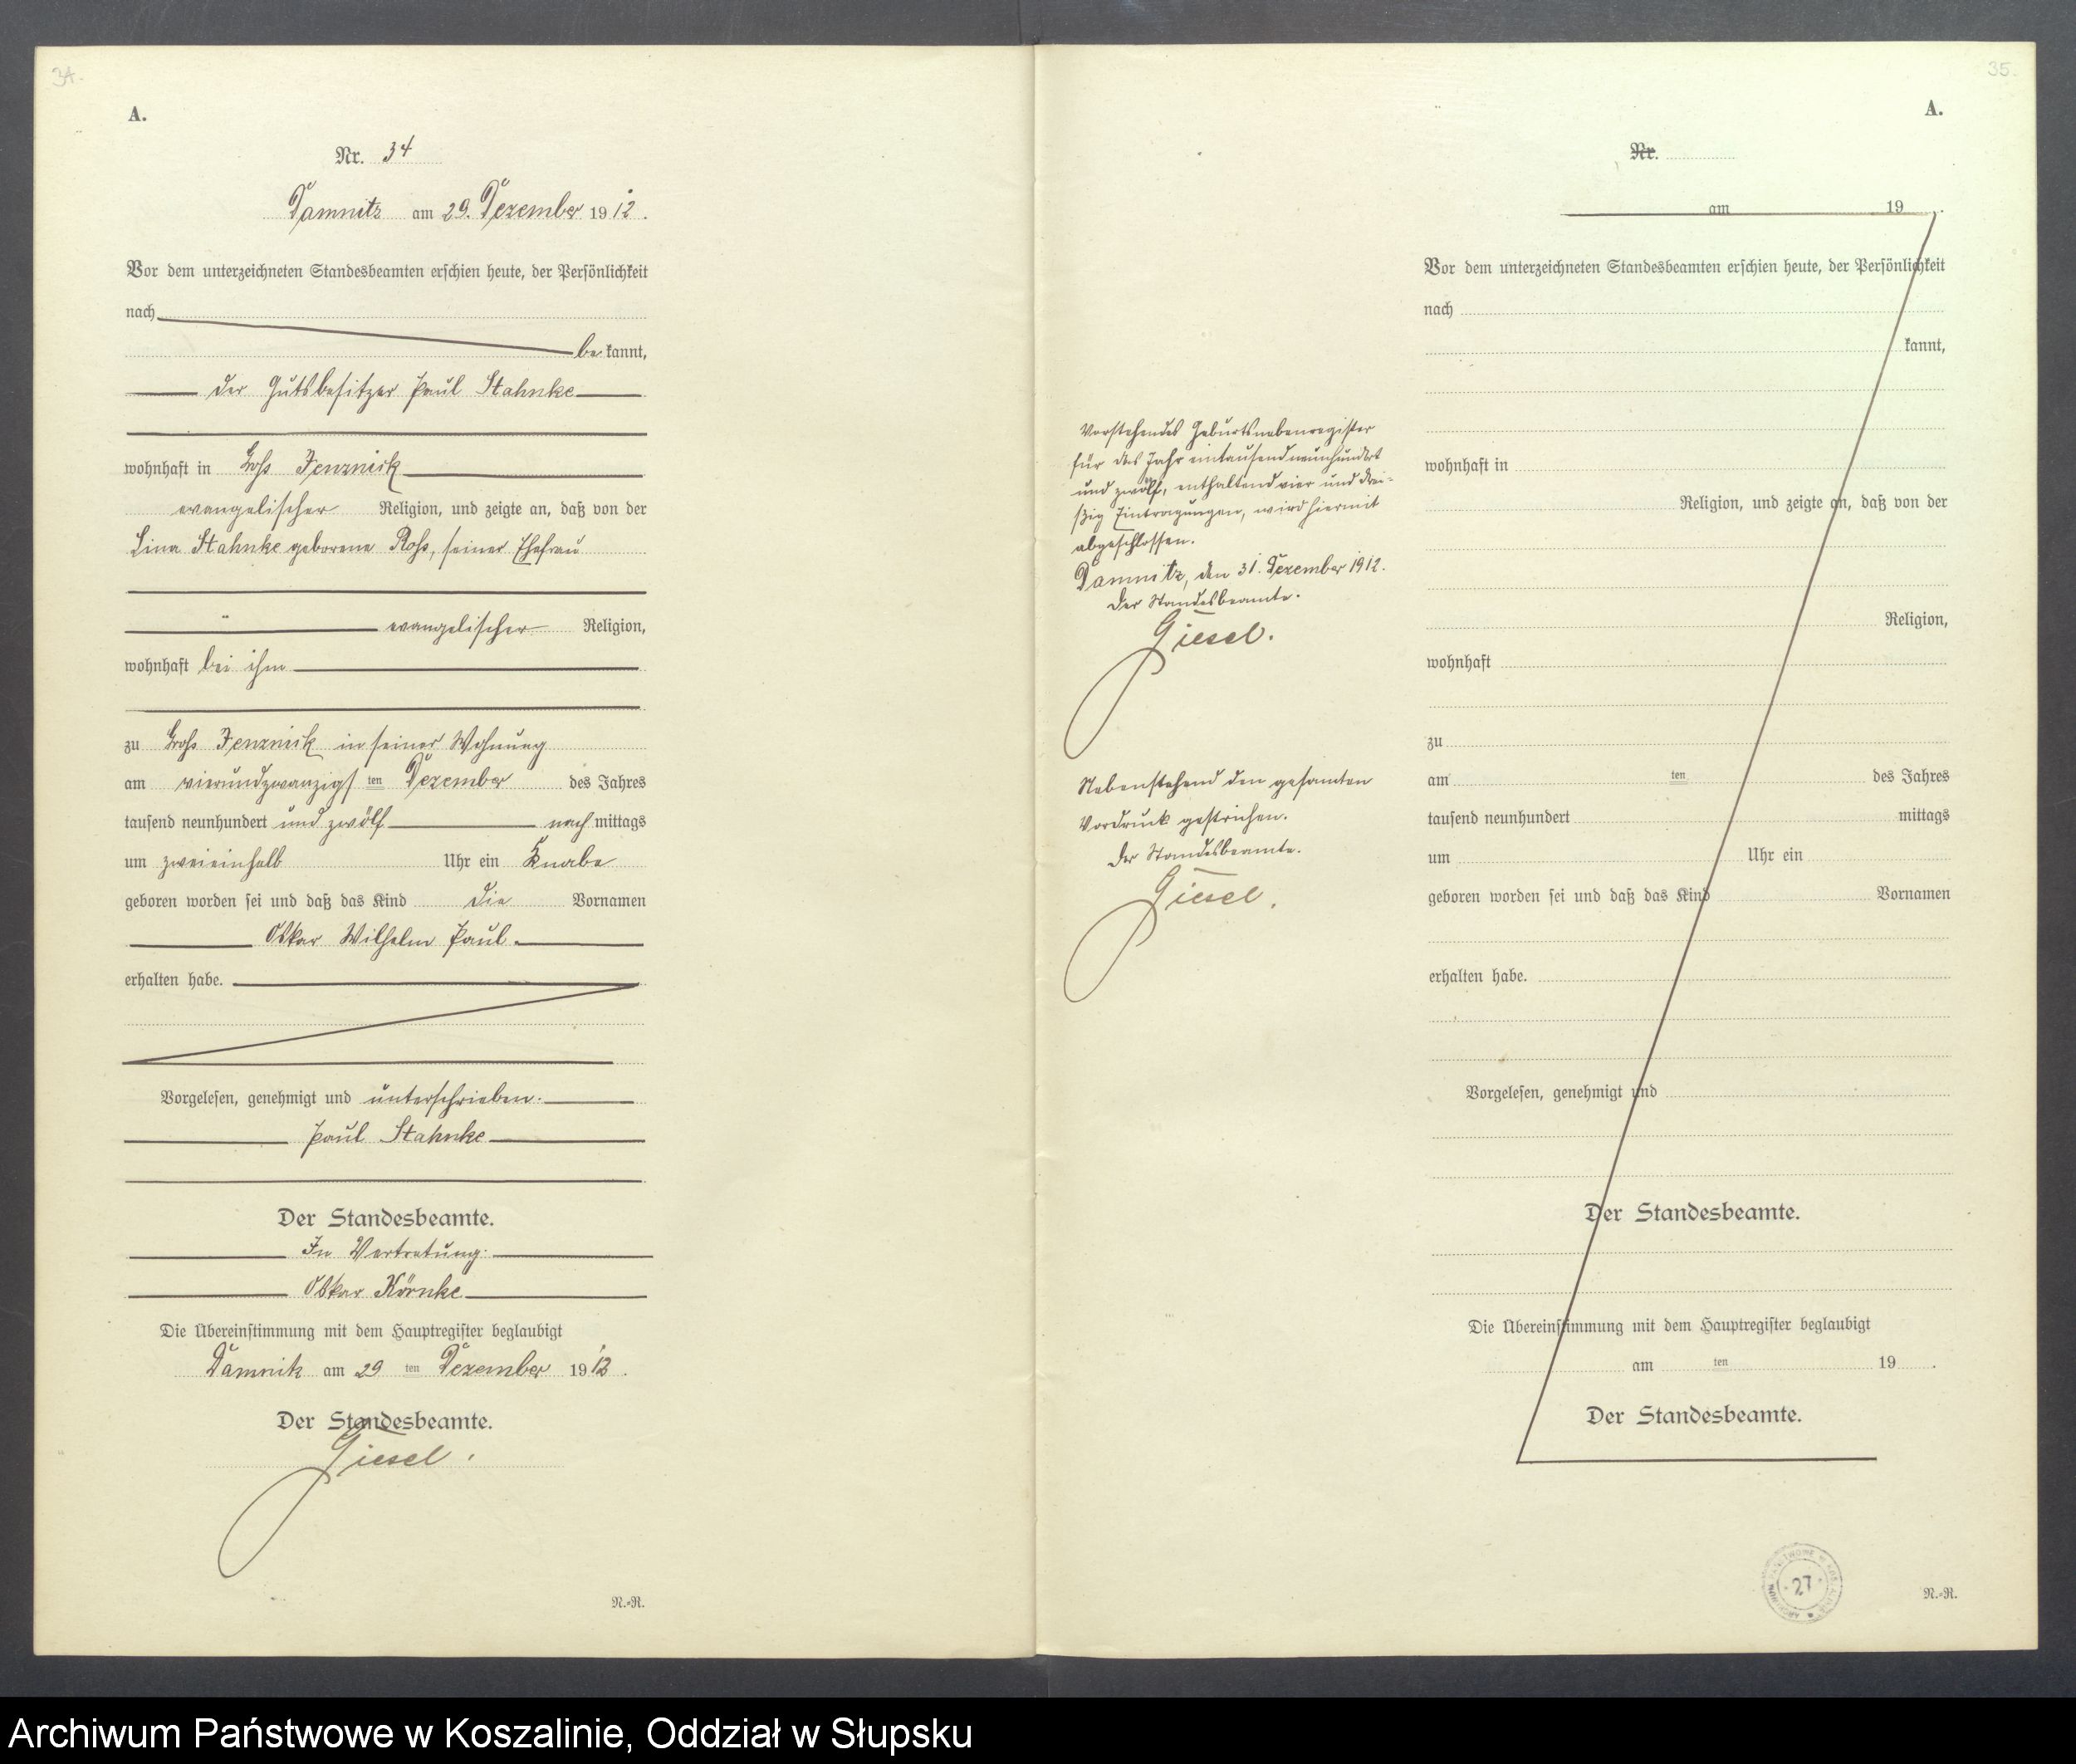 34.
A.
Nr. 34
Damnitz am 29. Dezember 1912.
Vor dem unterzeichneten Standesbeamten erschien heute, der Persönlichkeit
nach
be kannt,
der Gutsbesitzer Paul Stahnke
wohnhaft in Groß Jenznick
evangelischer Religion, und zeigte an, daß von der
Lina Stahnke geborene Roß, seiner Ehefrau
evangelischer Religion,
wohnhaft bei ihm
zu Groß Jenznick in seiner Wohnung
am vierundzwanzigs ten Dezember des Jahres
tausend neunhundert und zwölf nach mittags
um zweieinhalb Uhr ein Knabe
geboren worden sei und daß das Kind die Vornamen
Oskar Wilhelm Paul
erhalten habe.
Vorgelesen, genehmigt und unterschrieben.
Paul Stahnke
Der Standesbeamte.
In Vertretung:
Oskar Körnke
Die Übereinstimmung mit dem Hauptregister beglaubigt
Damnitz am 29 ten Dezember 1912.
Der Standesbeamte.
Giesel.
N.=R.
35.
A.
Nr.
am 19 .
Vor dem unterzeichneten Standesbeamten erschien heute, der Persönlichkeit
nach
kannt,
wohnhaft in
Religion, und zeigte an, daß von der
Religion,
wohnhaft
zu
am ten des Jahres
tausend neunhundert mittags
um Uhr ein
geboren worden sei und daß das Kind Vornamen
erhalten habe.
Vorgelesen, genehmigt und
Der Standesbeamte.
Die Übereinstimmung mit dem Hauptregister beglaubigt
am ten 19 .
Der Standesbeamte.
N.=R.
Vorstehendes Geburtsnebenregister
für das Jahr eintausendneunhundert
und zwölf, enthaltend vier und drei=
ßig Eintragungen, wird hiermit
abgeschlossen.
Damnitz, den 31. Dezember 1912.
Der Standesbeamte.
Giesel.
Nebenstehend den gesamten
Vordruck gestrichen.
Der Standesbeamte.
Giesel.
27
Archiwum Państwowe w Koszalinie, Oddział w Słupsku